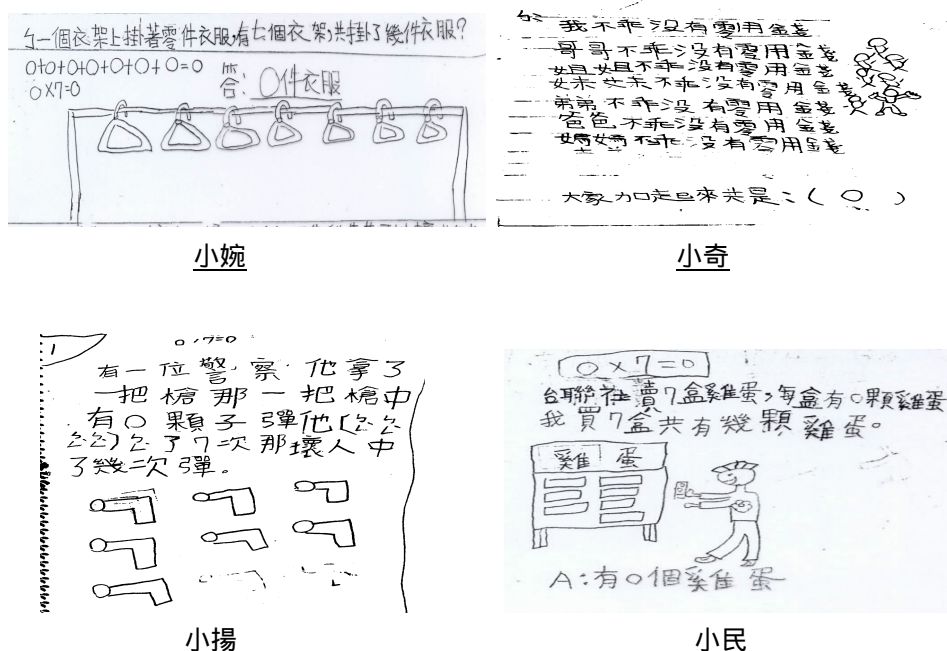 ㄅ一個衣架上掛著零件衣服,有七個衣架,共掛了幾件衣服?
0+0+0+0+0+0+0=0
0×7=0
答: 0件衣服
小婉
ㄅ:
我不乖没有零用金錢
哥哥不乖没有零用金錢
姐姐不乖没有零用金錢
妹妹不乖没有零用金錢
弟弟不乖没有零用金錢
爸爸不乖没有零用金錢
媽媽不乖没有零用金錢
大家加起來共是:( 0 )
小奇
1
有一位警察他拿了
一把槍那一把槍中
有0顆子彈他(ㄊㄊ
了7次那壞人中
了幾次彈。
小揚
0×7=0
台聯社賣7盒雞蛋,每盒有0顆雞蛋
我買7盒共有幾顆雞蛋。
雞蛋
A:有0個雞蛋
小民